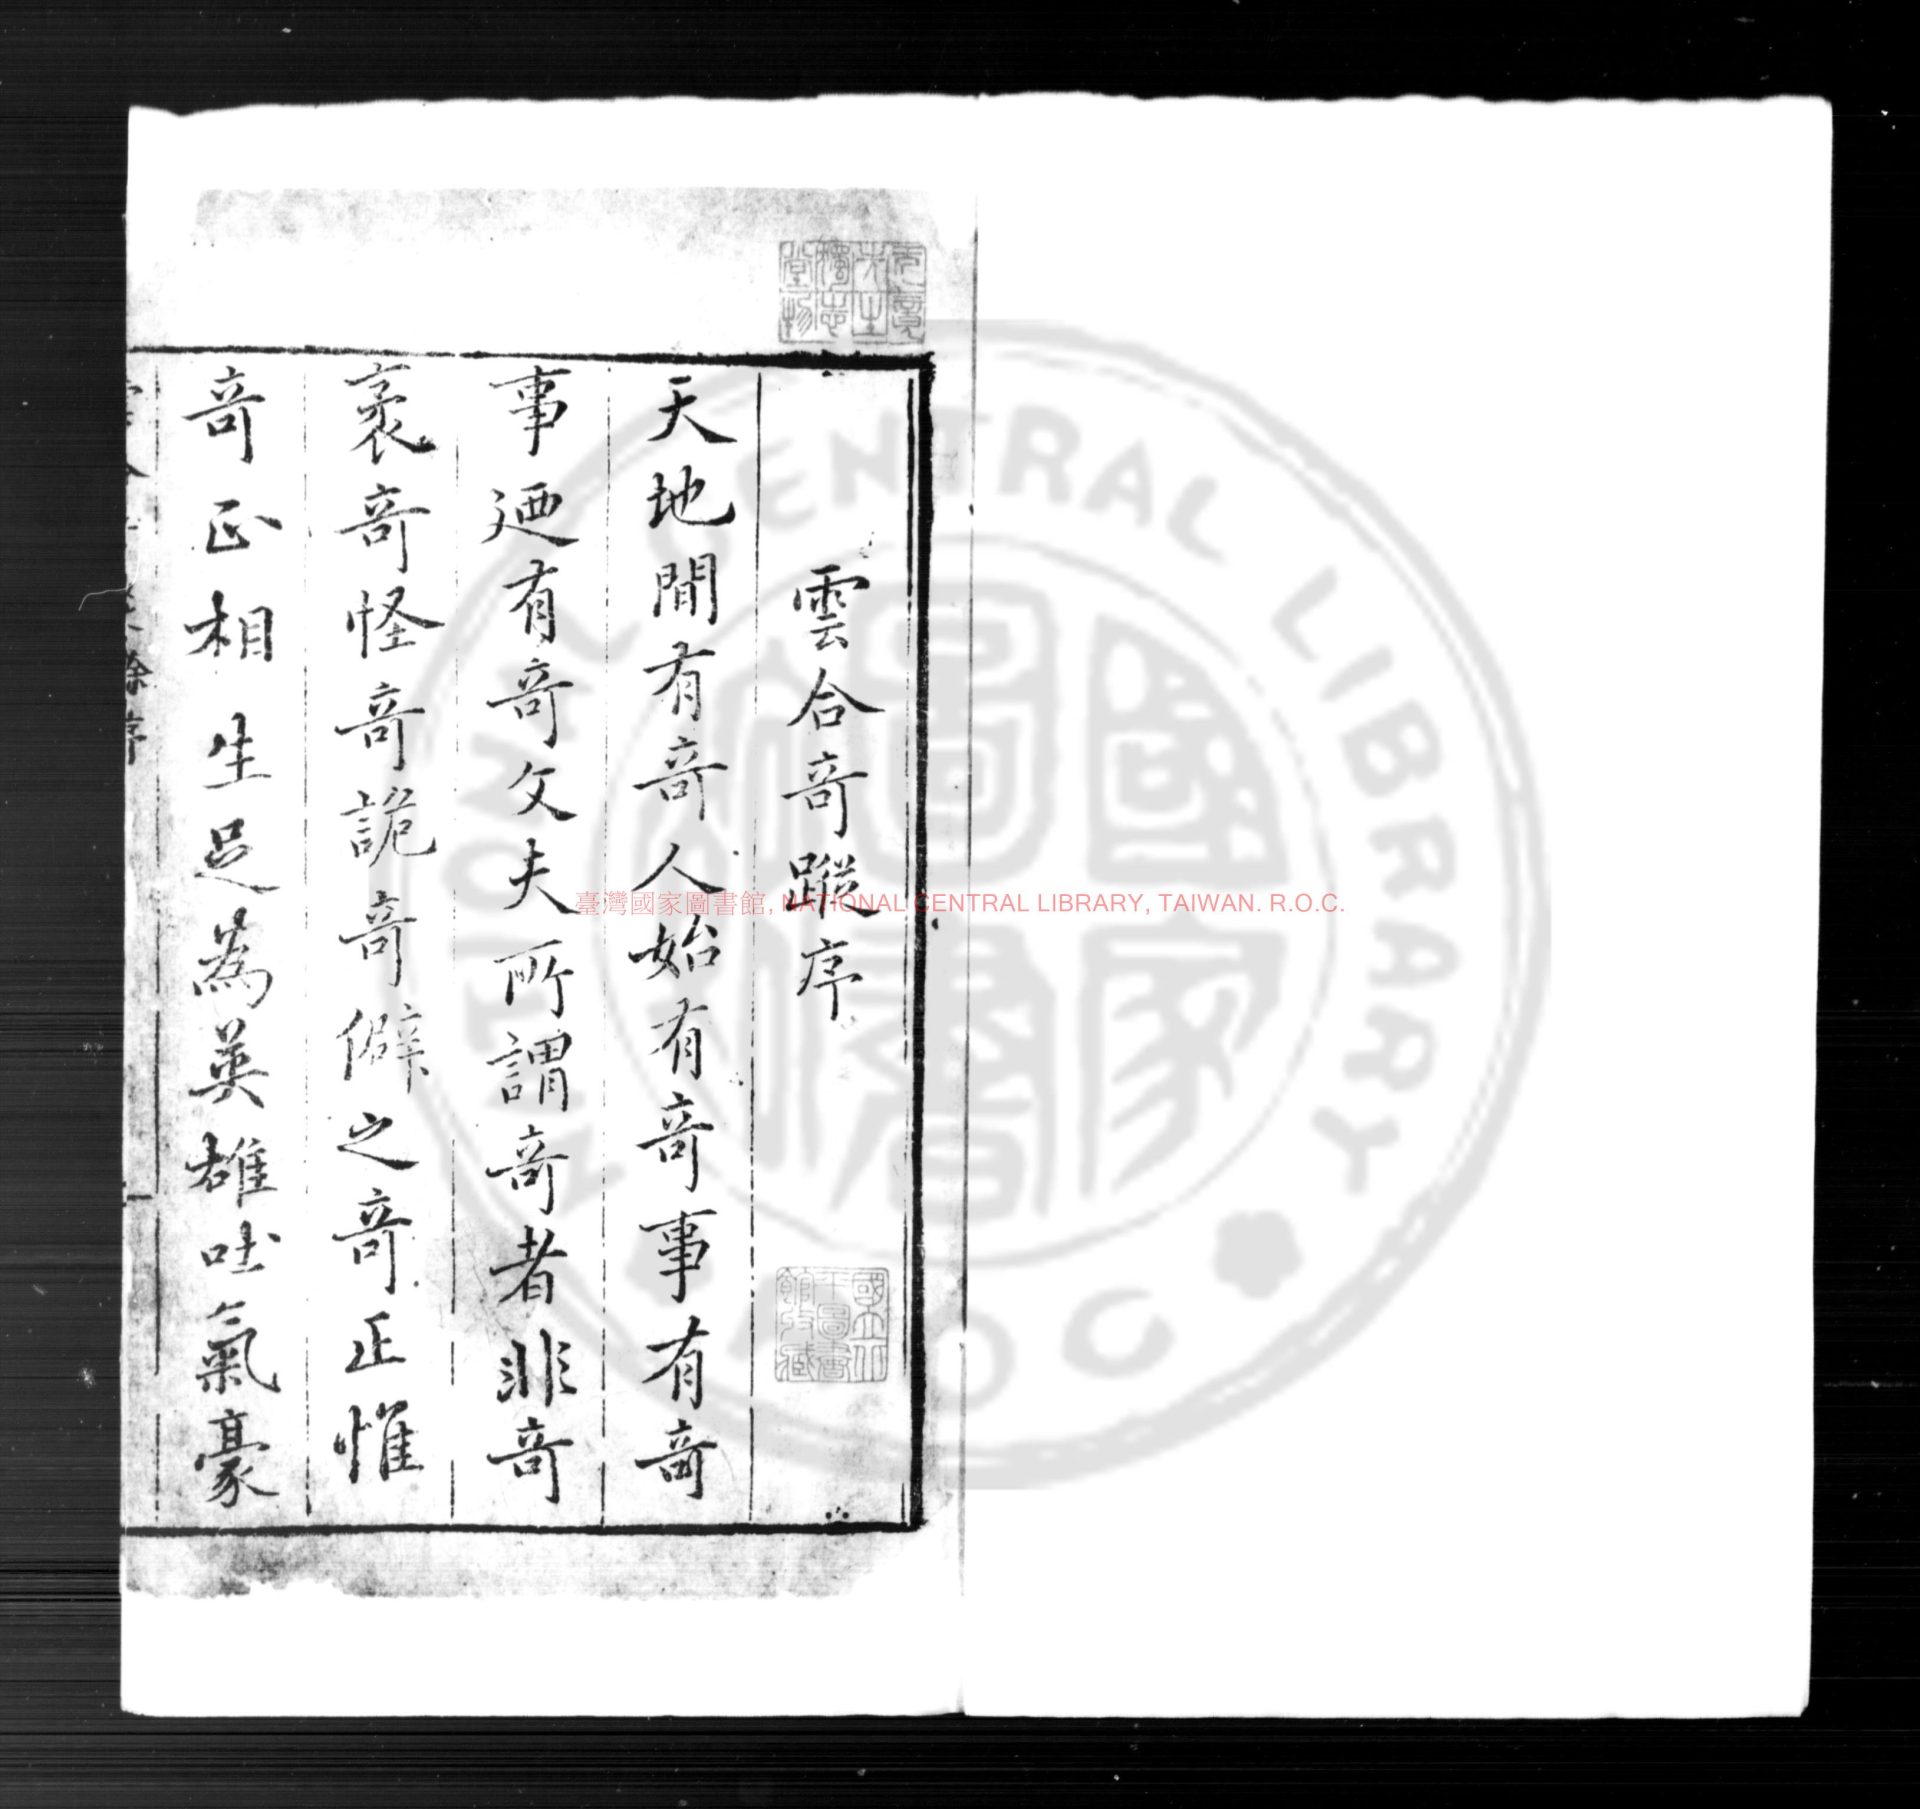 雲合奇蹤序
天地間有奇人始有奇事有奇
事廼有奇文夫所謂奇者非奇
袤奇怪奇詭奇僻之奇正惟
奇正相生足為英雄吐氣豪
國立中央圖書館收藏
臺灣國家圖書館, NATIONAL CENTRAL LIBRARY, TAIWAN. R.O.C.
NATIONAL CENTRAL LIBRARY
國家圖書